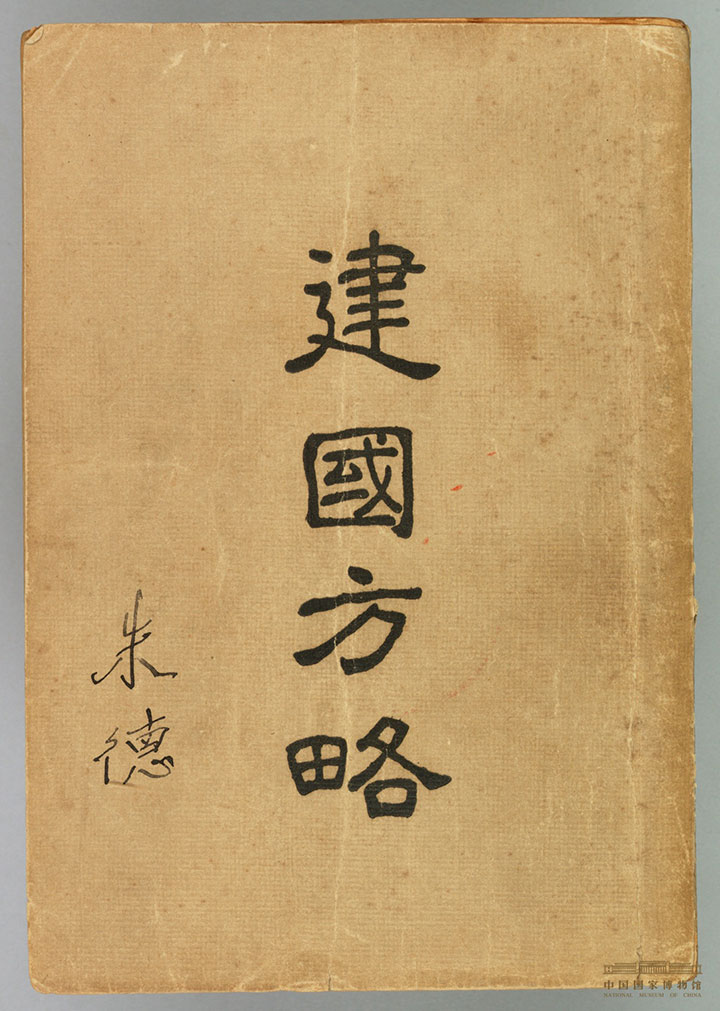 建國方略
朱德
中国国家博物馆
NATIONAL MUSEUM OF CHINA